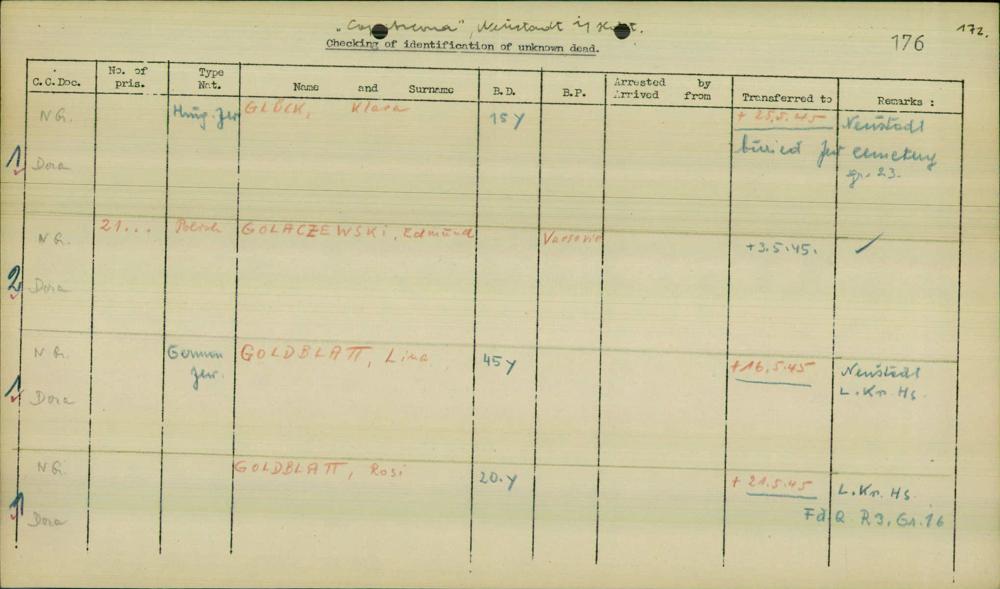 "Cap Arcona", Neustadt i/ Holst.
172.
Checking of identification of unknown dead.
176
C.C.Doc. No. of pris. Type Nat. Name and Surname B.D. B.P. Arrested by Arrived from Transferred to Remarks :
N G. Hung. Jew GLÜCK, Klara 15 y + 25.5.45 Neustadt
buried Jew cemetery
gr. 23.
1 Dora
N G. 21... Polish GOLACZEWSKI, Edmund Varsovie +3.5.45.
2 Dora
N G. German Jew. GOLDBLATT, Lina 45 y +16.5.45 Neustadt
L. Kr. Hs.
1 Dora
N G. GOLDBLATT, Rosi 20. y + 21.5.45 L. Kr. Hs.
1 Dora R 3, Gr. 16